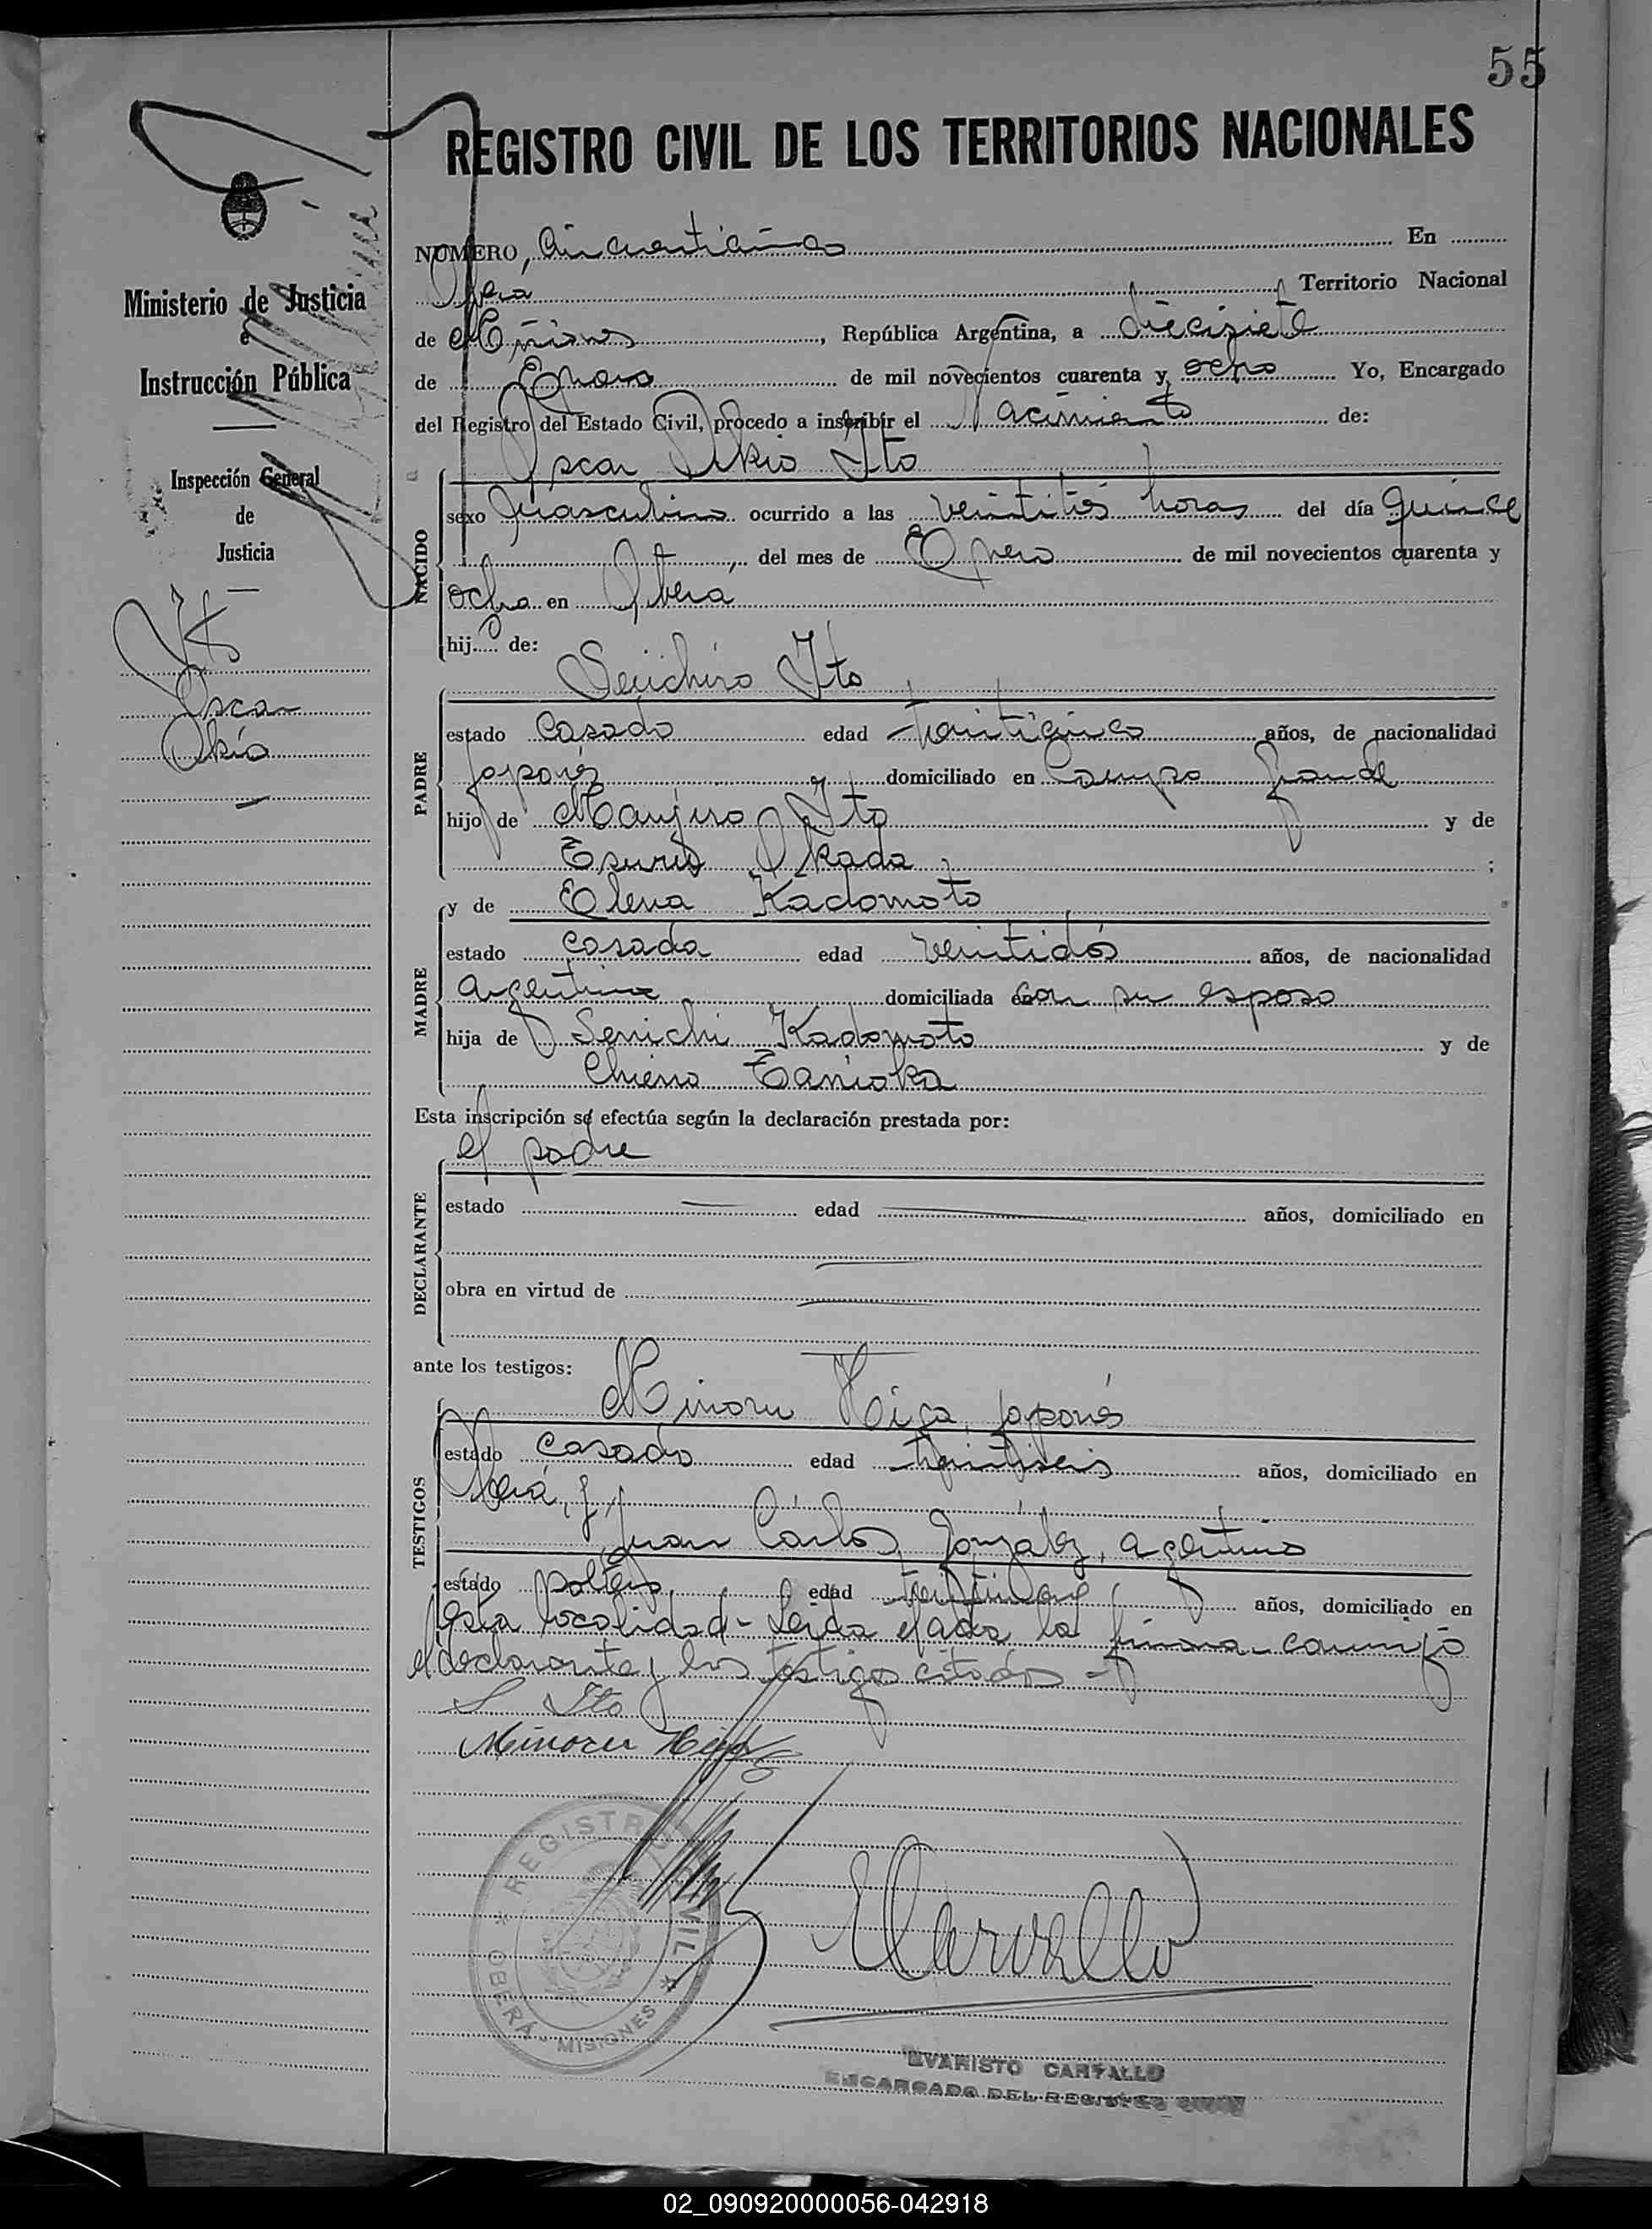 55
REGISTRO CIVIL DE LOS TERRITORIOS NACIONALES
Ministerio de Justicia
e
Instrucción Pública
Inspección General
de
Justicia
Ito
Oscar
Akio
NÚMERO, Cincuenticinco En
Oberá Territorio Nacional
de Misiones, República Argentina, a diecisiete
de Enero de mil novecientos cuarenta y ocho Yo, Encargado
del Registro del Estado Civil, procedo a inscribir el Nacimiento de:
Oscar Akio Ito
NACIDO
sexo Masculino ocurrido a las veintitrés horas del día quince
, del mes de Enero de mil novecientos cuarenta y
ocho en Oberá
hijo de:
Seiichiro Ito
PADRE
estado Casado edad treinticinco años, de nacionalidad
Japonés domiciliado en Campo Grande
hijo de Manjiro Ito y de
Okada ;
MADRE
y de Elena Kadomoto
estado casada edad veintidós años, de nacionalidad
argentina domiciliada en con su esposo
hija de Senichi Kadomoto y de
Tanioka
Esta inscripción se efectúa según la declaración prestada por:
el padre
DECLARANTE
estado — edad — años, domiciliado en
—
obra en virtud de —
—
ante los testigos:
Minoru Higa, japonés
TESTIGOS
estado Casado edad treintiseis años, domiciliado en
Oberá, y
Juan Carlos González, argentino
estado soltero, edad años, domiciliado en
esta localidad - Leída el acta la firman conmigo
el declarante y los testigos citados -
S Ito
Minoru Higa
REGISTRO CIVIL
OBERÁ - MISIONES
ECarvallo
EVARISTO CARVALLO
ENCARGADO DEL REGISTRO CIVIL
02_090920000056-042918